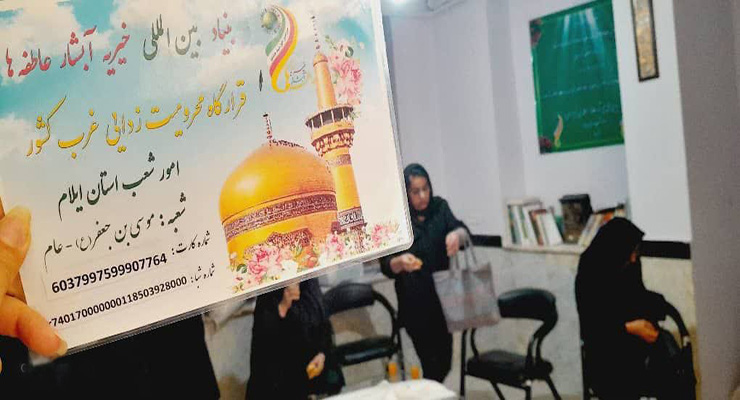 بنیاد بین المللی خیریه آبشار عاطفه ها
قرارگاه محرومیت زدایی غرب کشور
امور شعب استان ایلام
شعبه : موسی بن جعفر(ع) - عام
شماره کارت: 6037997599907764
شماره شبا: 740170000000118503928000